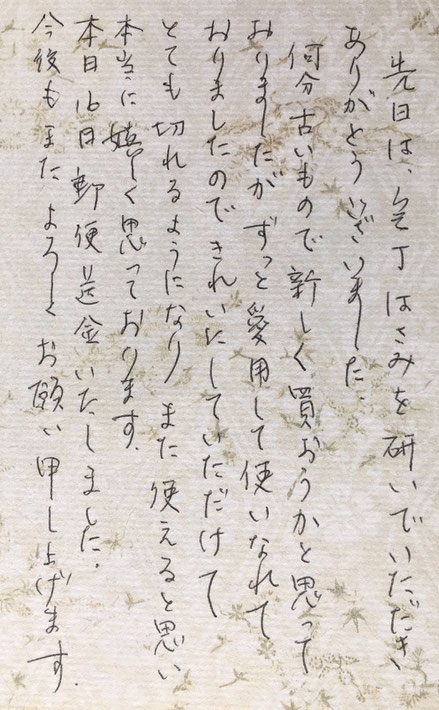 先日は、包丁はさみを研いでいただき
ありがとうございました.
何分古いもので新しく買おうかと思って
おりましたがずっと愛用して使いなれて
おりましたのできれいにしていただけて
とても切れるようになり、また使えると思い
本当に嬉しく思っております.
本日16日郵便送金いたしました.
今後もまたよろしくお願い申し上げます.